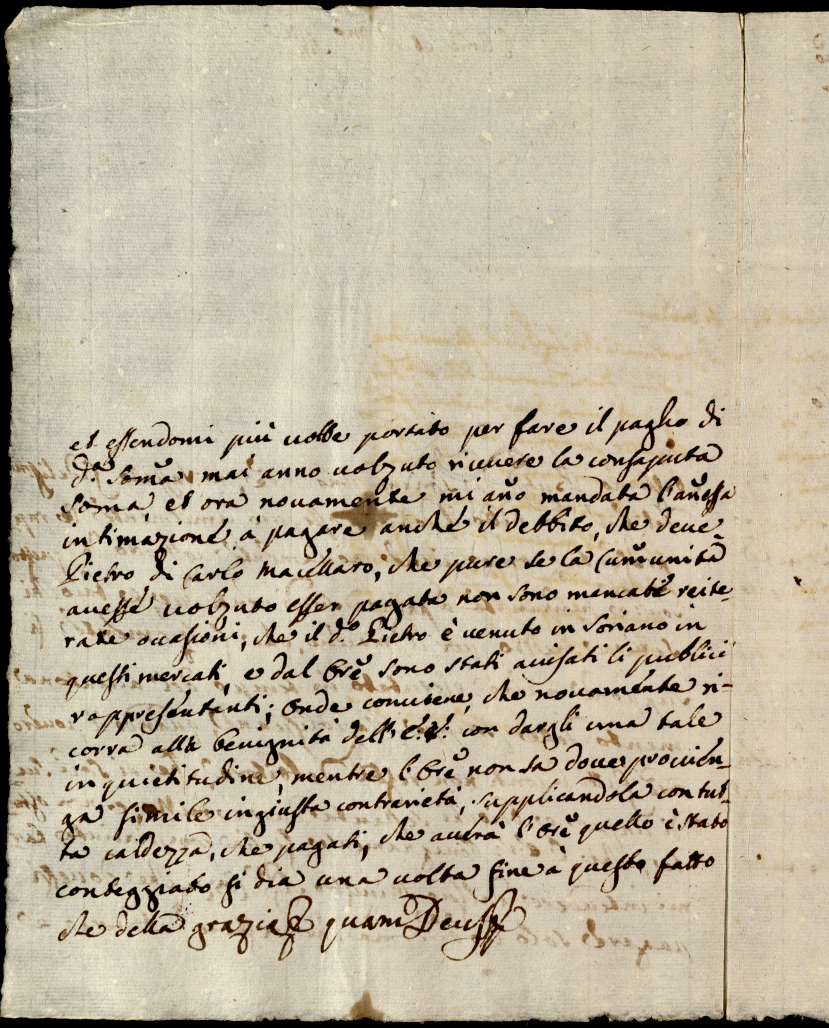 et essendomi più uolte portato per fare il pagho di
d.ᵃ som̃a mai anno uolzuto riceuere la consaputa
soma, et ora nouamente mi añ̃o mandata l'añessa
intimazione à pagare anche il debbito, che deue
Pietro di Carlo Macellaro, che pure se la Cum̃unità
auesse uolzuto esser pagata non sono mancate reite-
rate ocasioni, che il d.º Pietro è uenuto in Soriano in
questi mercati, e dal Orẽ sono stati auisati li publici
rappresentanti; onde conuiene, che nouamente ri-
corra alla benignità dell' con dargli una tale
inquietitudine, mentre l'Orẽ non sa doue prouien-
ga simile ingiusta contrarietà, supplicandola con tut-
ta caldezza, che pagati, che aurà l'Orẽ quello è stato
conteggiato si dia una uolta fine à questo fatto
che della grazia quam Deus